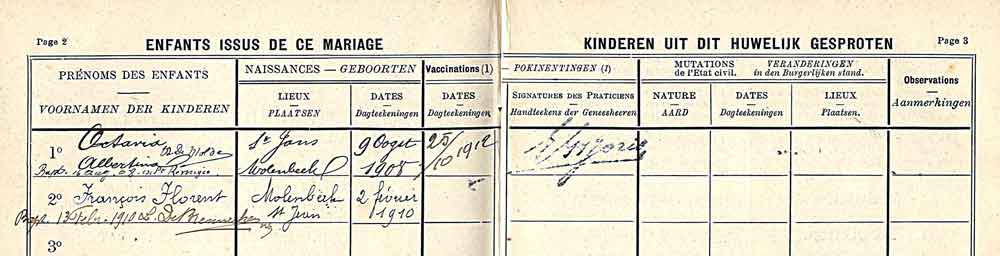 Page 2
ENFANTS ISSUS DE CE MARIAGE
KINDEREN UIT DIT HUWELIJK GESPROTEN
Page 3
PRÉNOMS DES ENFANTS
VOORNAMEN DER KINDEREN
NAISSANCES — GEBOORTEN
LIEUX
PLAATSEN
DATES
Dagteekeningen
Vaccinations (1)
DATES
Dagteekeningen
— POKINENTINGEN (1)
SIGNATURES DES PRATICIENS
Handteekens der Geneesheeren
MUTATIONS
de l'Etat civil.
VERANDERINGEN
in den Burgerlijken stand.
NATURE
AARD
DATES
Dagteekeningen
LIEUX
Plaatsen.
Observations
Aanmerkingen
1º
Octavia
Albertina
St Jans
Molenbeek
9 Oogst
1908
25/10 1912
2º
François Florent
Molenbeek
St Jean
2 février
1910
3º